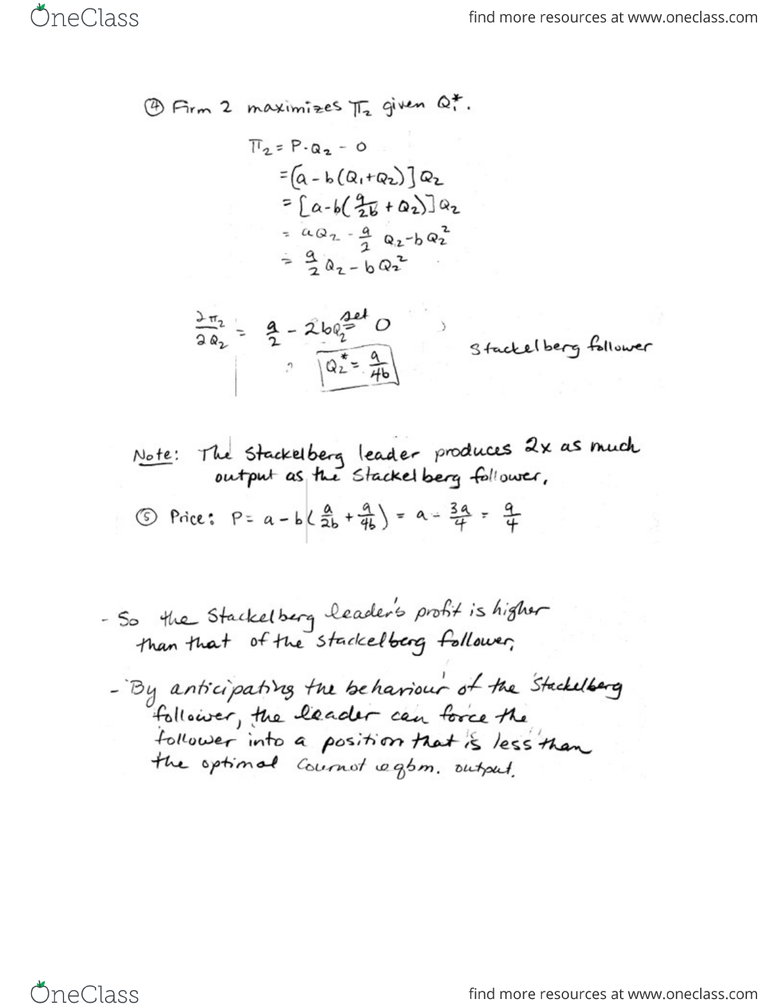 OneClass
find more resources at www.oneclass.com
④ Firm 2 maximizes π₂ given Q₁*.
π₂ = P·Q₂ - 0
= [a - b(Q₁+Q₂)]Q₂
= [a - b(a/2b + Q₂)]Q₂
= aQ₂ - a/2 Q₂ - bQ₂²
= a/2 Q₂ - bQ₂²
∂π₂/∂Q₂ = a/2 - 2bQ₂ set= 0
Q₂* = a/4b
Stackelberg follower
Note: The Stackelberg leader produces 2x as much
output as the Stackelberg follower.
⑤ Price: P = a - b(a/2b + a/4b) = a - 3a/4 = a/4
- So the Stackelberg leader's profit is higher
than that of the Stackelberg follower.
- By anticipating the behaviour of the Stackelberg
follower, the leader can force the
follower into a position that is less than
the optimal Cournot eqbm. output.
OneClass
find more resources at www.oneclass.com